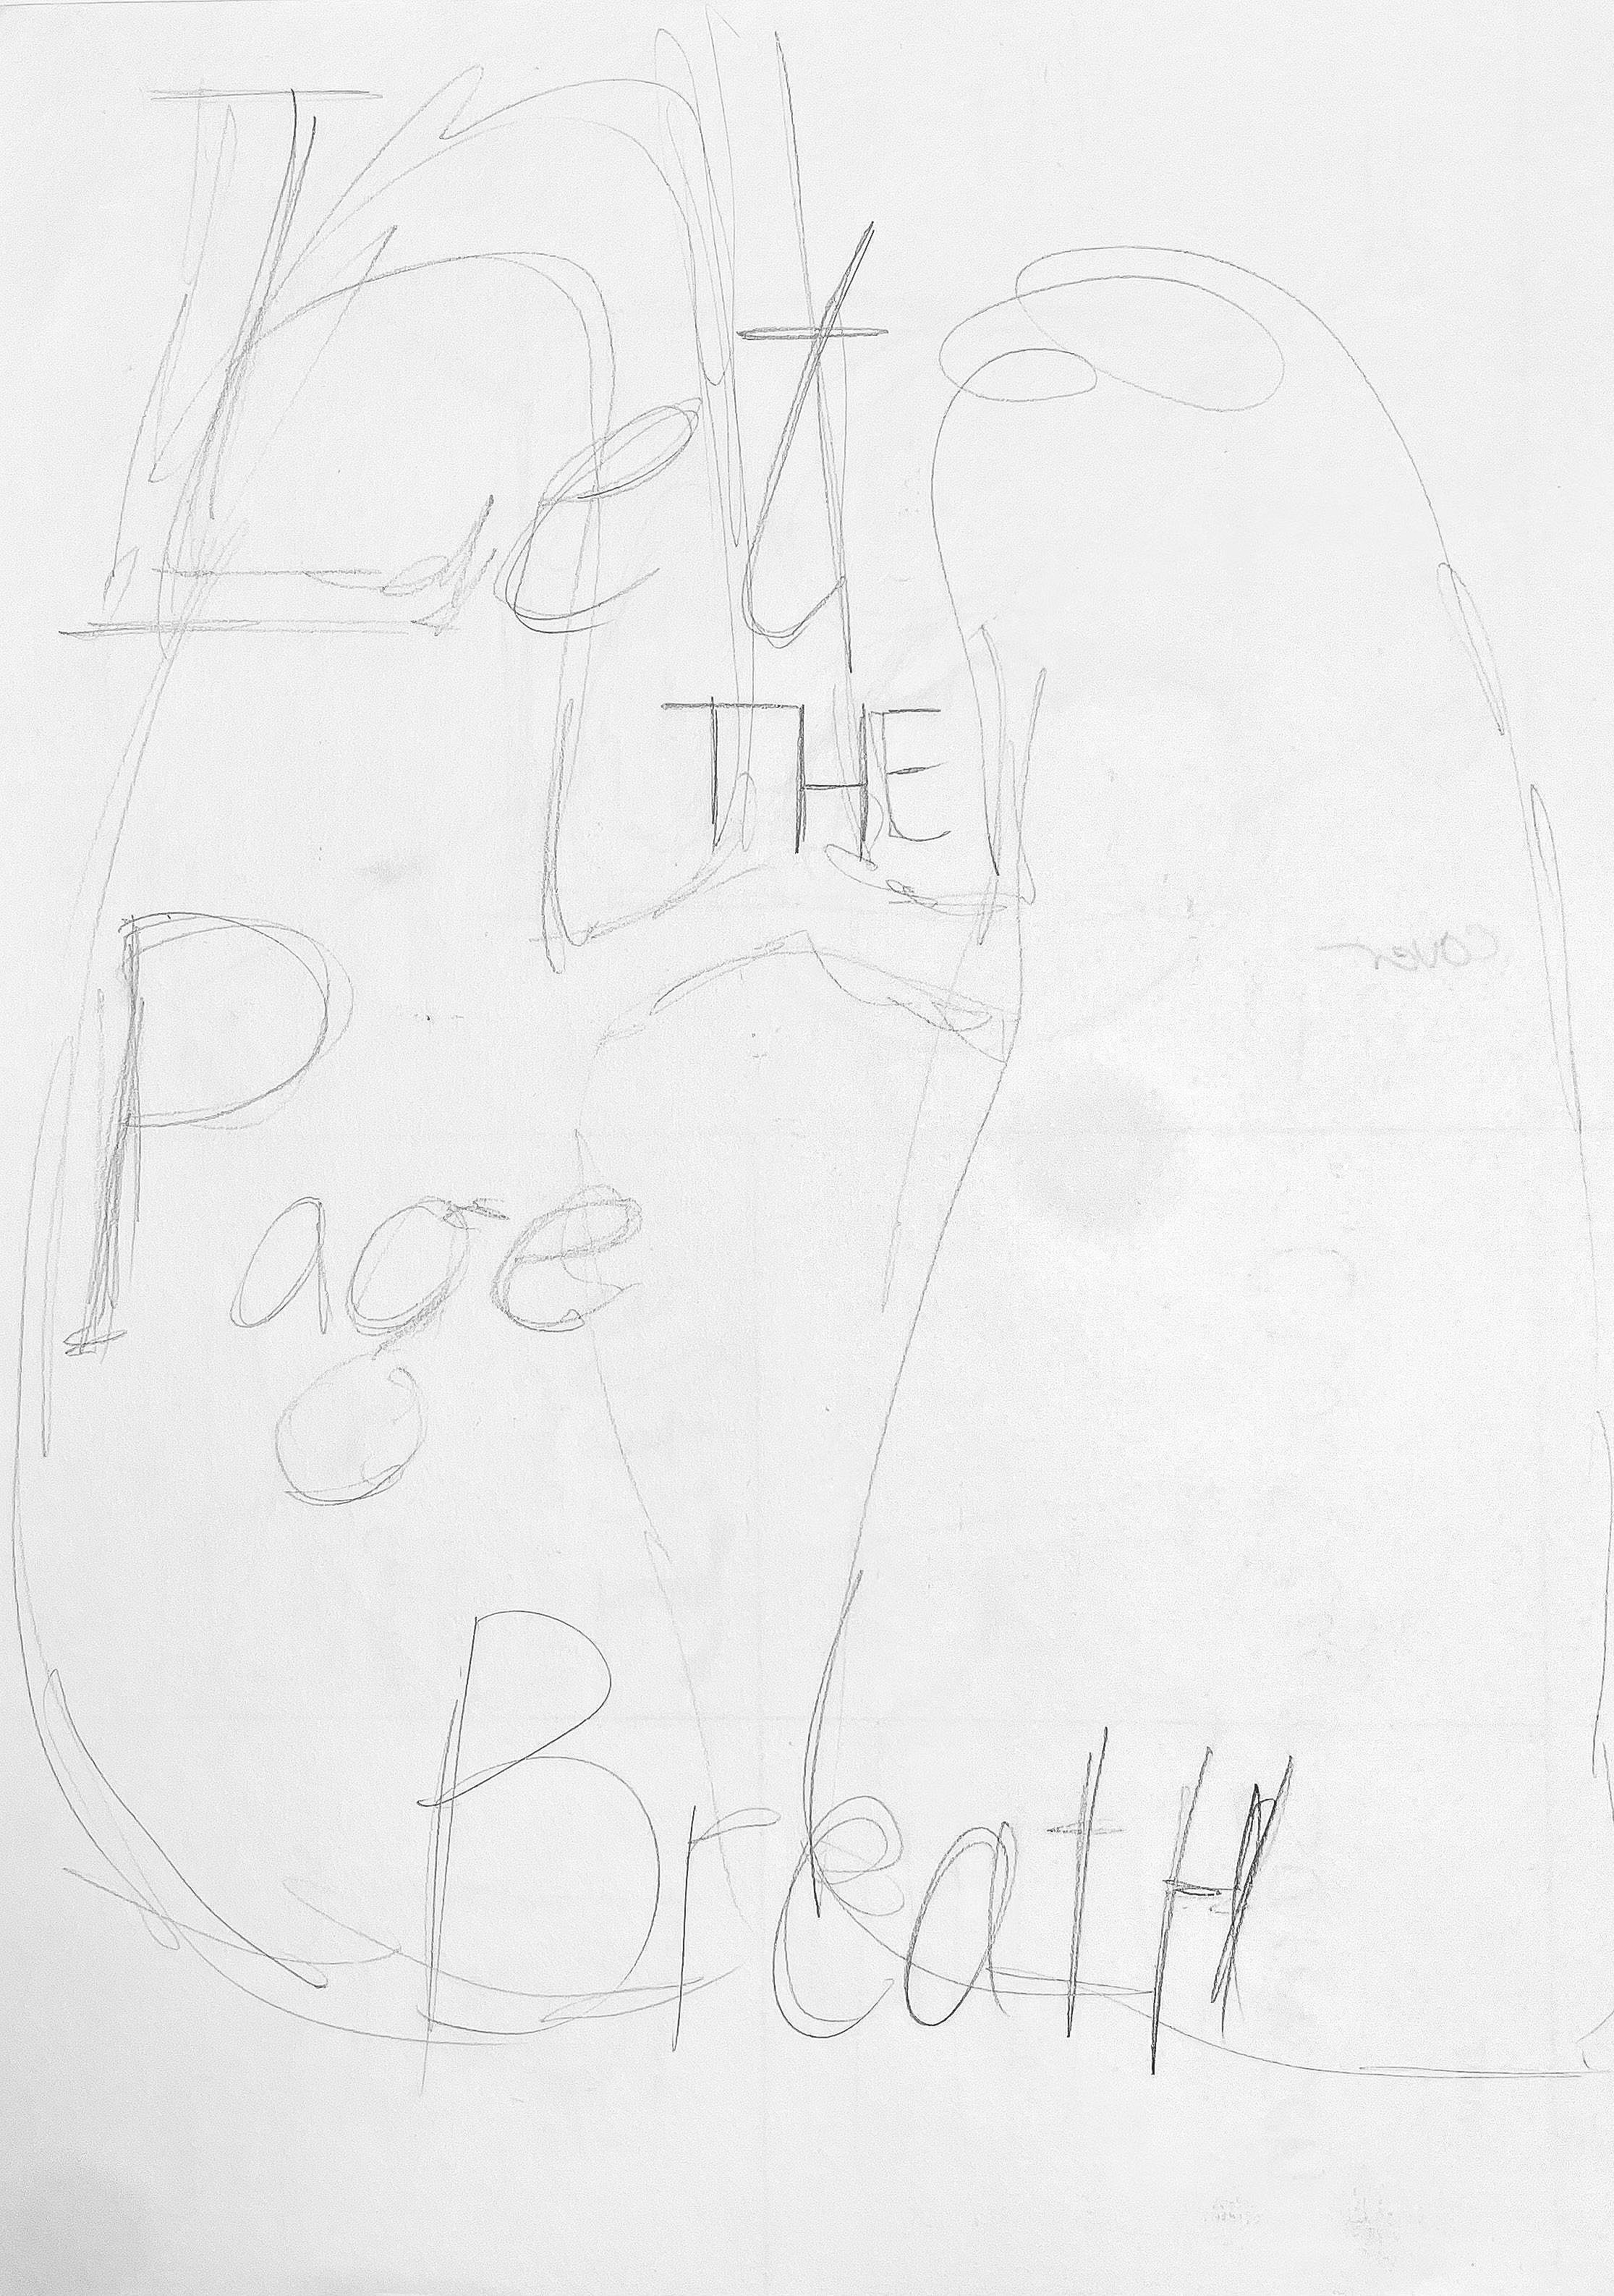 Let
THE
Page
BreatH
cover